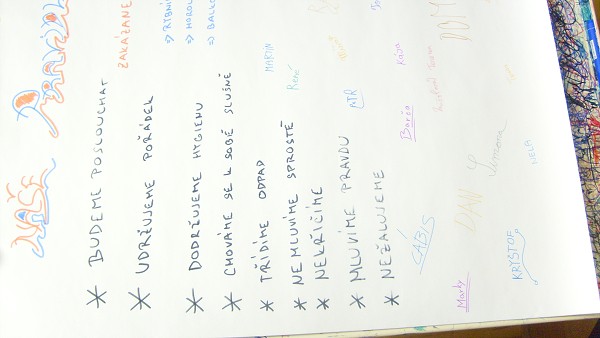 NAŠE PRAVIDLA
* BUDEME POSLOUCHAT
* UDRŽUJEME POŘÁDEK
* DODRŽUJEME HYGIENU
* CHOVÁME SE K SOBĚ SLUŠNĚ
* TŘÍDÍME ODPAD
* NEMLUVÍME SPROSTĚ
* NEKŘIČÍME
* MLUVÍME PRAVDU
* NEŽALUJEME
ZAKÁZANÉ
⇒ RYBNÍ
⇒ HOROL
⇒ BALKO
MARTIN
René
PÍTR
Kája
Bára
ČÁBIS
DAN
Simona
NELA
Marky
KRYŠTOF